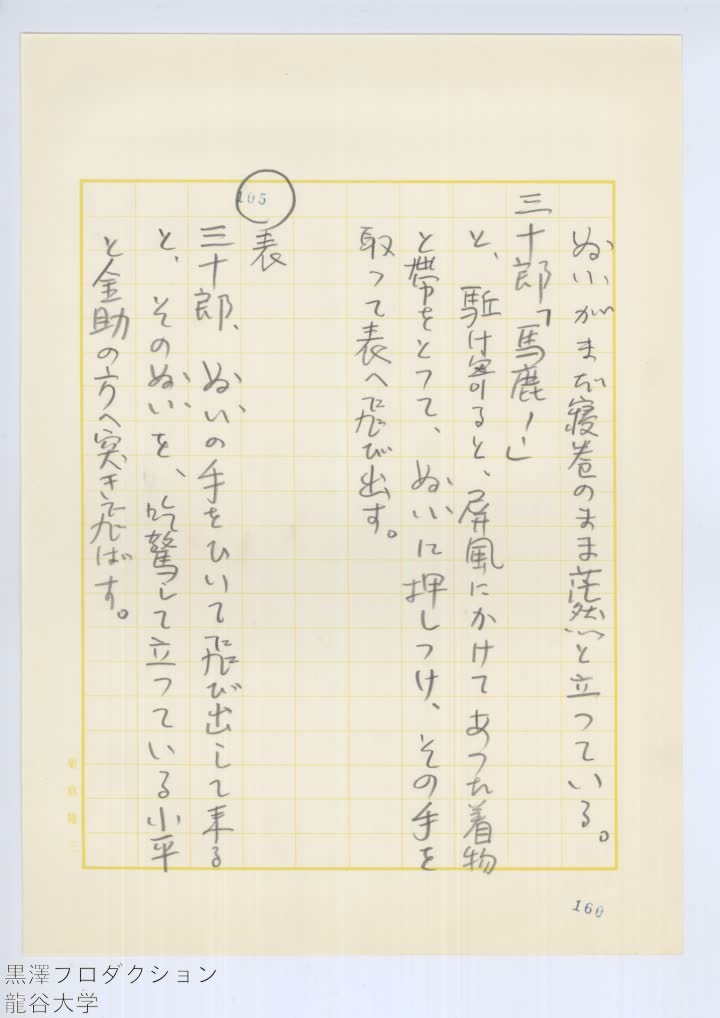 ぬいがまだ寝巻のまま茫然と立つている。
三十郎「馬鹿！」
と、駈け寄ると、屏風にかけてあつた着物
と帯をとつて、ぬいに押しつけ、その手を
取つて表へ飛び出す。
105
表
三十郎、ぬいの手をひいて飛び出して来る
と、そのぬいを、吃驚して立つている小平
と金助の方へ突き飛ばす。
160
黒澤プロダクション
龍谷大学